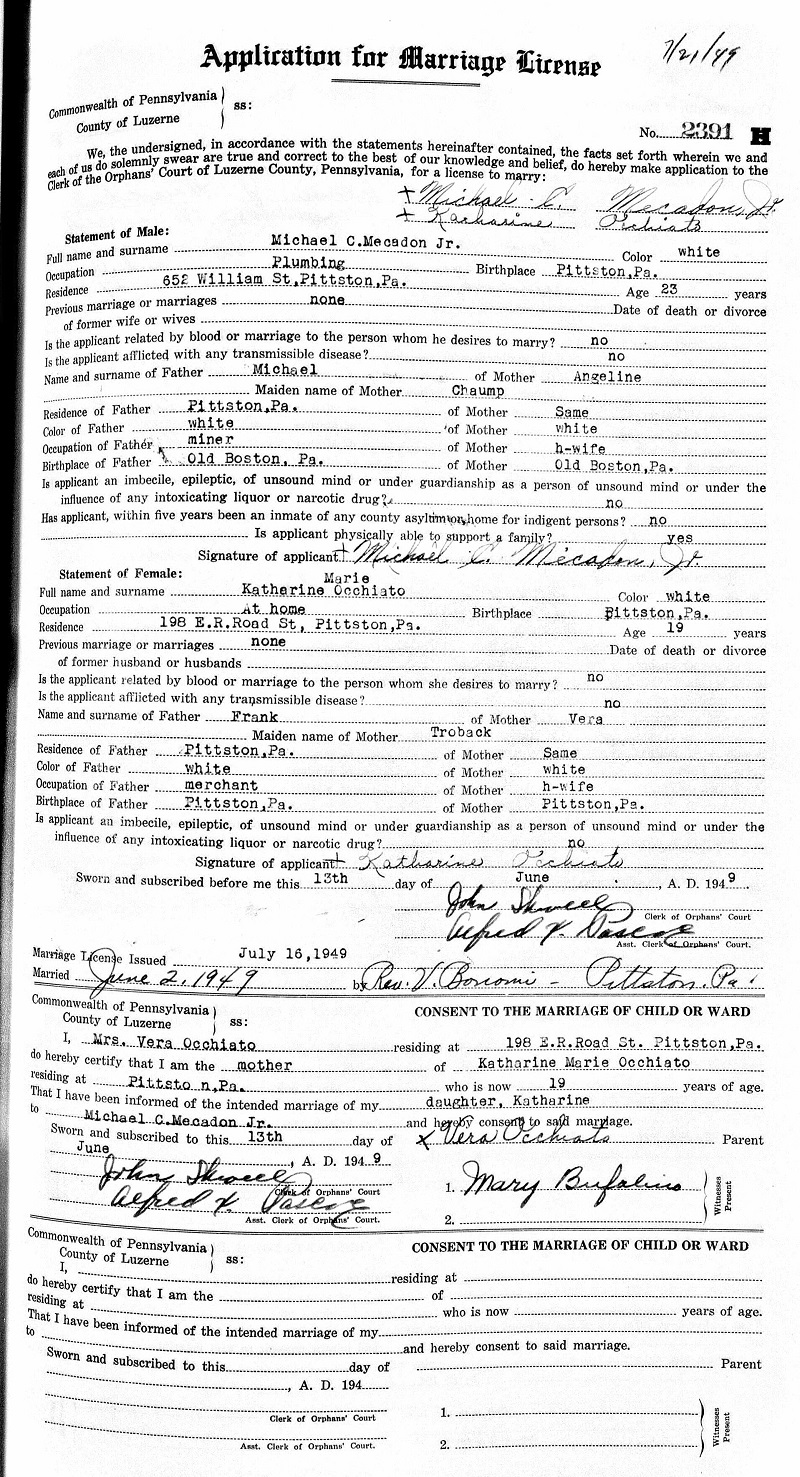 Application for Marriage License
7/21/49
Commonwealth of Pennsylvania
County of Luzerne
ss:
No. 2391 H
We, the undersigned, in accordance with the statements hereinafter contained, the facts set forth wherein we and
each of us do solemnly swear are true and correct to the best of our knowledge and belief, do hereby make application to the
Clerk of the Orphans' Court of Luzerne County, Pennsylvania, for a license to marry:
+ Michael C. Mecadon, Jr.
+ Katharine Occhiato
Statement of Male:
Full name and surname Michael C.Mecadon Jr. Color white
Occupation Plumbing Birthplace Pittston,Pa.
Residence 652 William St,Pittston,Pa. Age 23 years
Previous marriage or marriages none Date of death or divorce
of former wife or wives
Is the applicant related by blood or marriage to the person whom he desires to marry? no
Is the applicant afflicted with any transmissible disease? no
Name and surname of Father Michael of Mother Angeline
Maiden name of Mother Chaump
Residence of Father Pittston,Pa. of Mother Same
Color of Father white of Mother white
Occupation of Father miner of Mother h-wife
Birthplace of Father Old Boston, Pa. of Mother Old Boston,Pa.
Is applicant an imbecile, epileptic, of unsound mind or under guardianship as a person of unsound mind or under the
influence of any intoxicating liquor or narcotic drug? no
Has applicant, within five years been an inmate of any county asylum or home for indigent persons? no
Is applicant physically able to support a family? yes
Signature of applicant + Michael C. Mecadon, Jr.
Statement of Female:
Marie
Full name and surname Katharine Occhiato Color white
Occupation At home Birthplace Pittston,Pa.
Residence 198 E.R.Road St, Pittston,Pa. Age 19 years
Previous marriage or marriages none Date of death or divorce
of former husband or husbands
Is the applicant related by blood or marriage to the person whom she desires to marry? no
Is the applicant afflicted with any transmissible disease? no
Name and surname of Father Frank of Mother Vera
Maiden name of Mother Troback
Residence of Father Pittston,Pa. of Mother Same
Color of Father white of Mother white
Occupation of Father merchant of Mother h-wife
Birthplace of Father Pittston,Pa. of Mother Pittston,Pa.
Is applicant an imbecile, epileptic, of unsound mind or under guardianship as a person of unsound mind or under the
influence of any intoxicating liquor or narcotic drug? no
Signature of applicant + Katharine Occhiato
Sworn and subscribed before me this 13th day of June, A. D. 1949
John
Clerk of Orphans' Court
Alfred X. Pascoe
Asst. Clerk of Orphans' Court.
Marriage License Issued July 16,1949
Married June 2, 1949 by Rev. V. Bonomi - Pittston, Pa.
Commonwealth of Pennsylvania
County of Luzerne
ss:
CONSENT TO THE MARRIAGE OF CHILD OR WARD
I, Mrs. Vera Occhiato residing at 198 E.R.Road St. Pittston,Pa.
do hereby certify that I am the mother of Katharine Marie Occhiato
residing at Pittsto n,Pa. who is now 19 years of age.
That I have been informed of the intended marriage of my daughter, Katharine
to Michael C.Mecadon Jr. and hereby consent to said marriage.
Sworn and subscribed to this 13th day of x Vera Occhiato Parent
June, A. D. 1949
John
Clerk of Orphans' Court
1. Mary Bufalino
Alfred X. Pascoe
Asst. Clerk of Orphans' Court.
2.
Witnesses Present
Commonwealth of Pennsylvania
County of Luzerne
ss:
CONSENT TO THE MARRIAGE OF CHILD OR WARD
I, residing at
do hereby certify that I am the of
residing at who is now years of age.
That I have been informed of the intended marriage of my
to and hereby consent to said marriage.
Sworn and subscribed to this day of Parent
, A. D. 194
Clerk of Orphans' Court
1.
Asst. Clerk of Orphans' Court.
2.
Witnesses Present